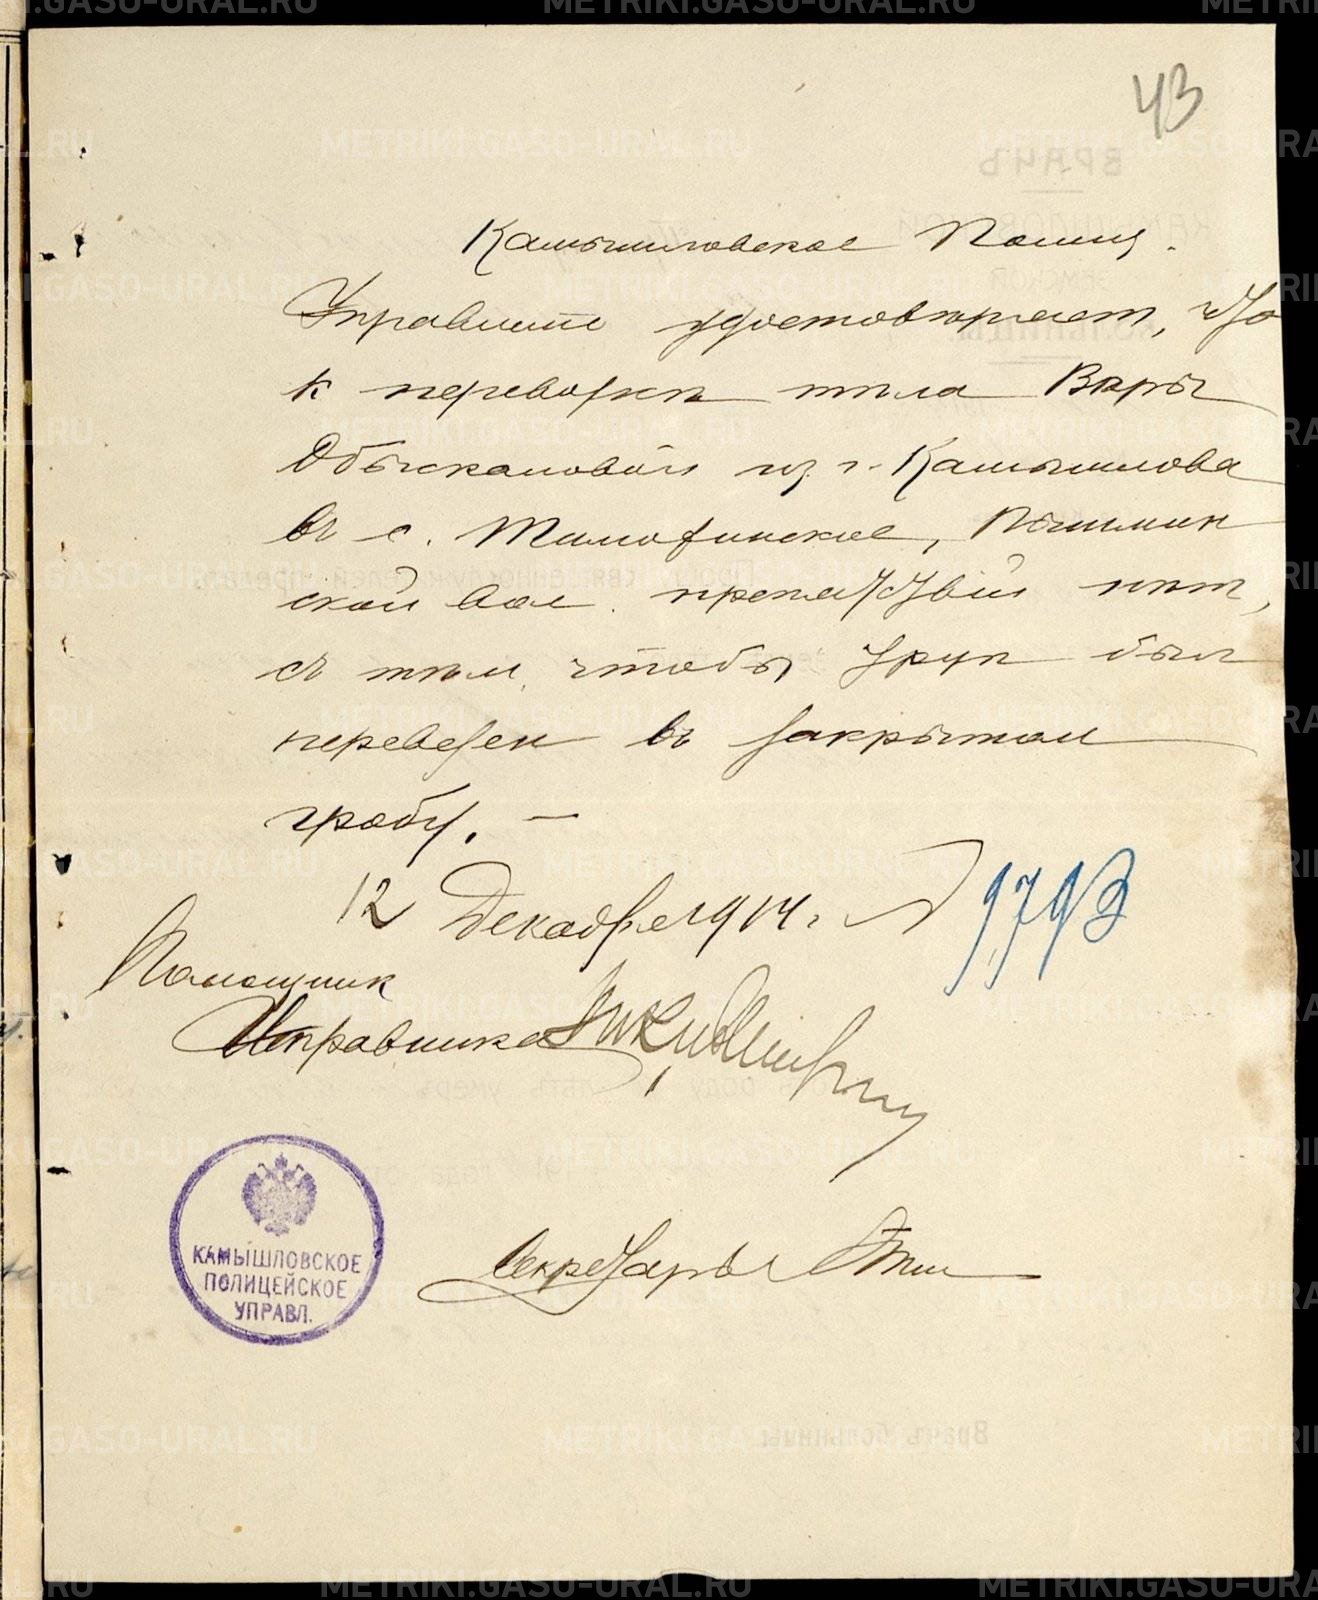 43
Камышловское Полиц.
Управление удостоверяет, что
к перевозке тѣла Вѣры
Обыскаловой из г. Камышлова
въ с. Тимофинское, Пышмин
ской вол. препятствий нѣт,
съ тѣм, чтобы труп был
перевезен въ закрытом
гробу. —
12 Декабря 1914 г. № 9793
Помощник
Исправника
КАМЫШЛОВСКОЕ
ПОЛИЦЕЙСКОЕ
УПРАВЛ.
Секретарь
METRIKI.GASO-URAL.RU